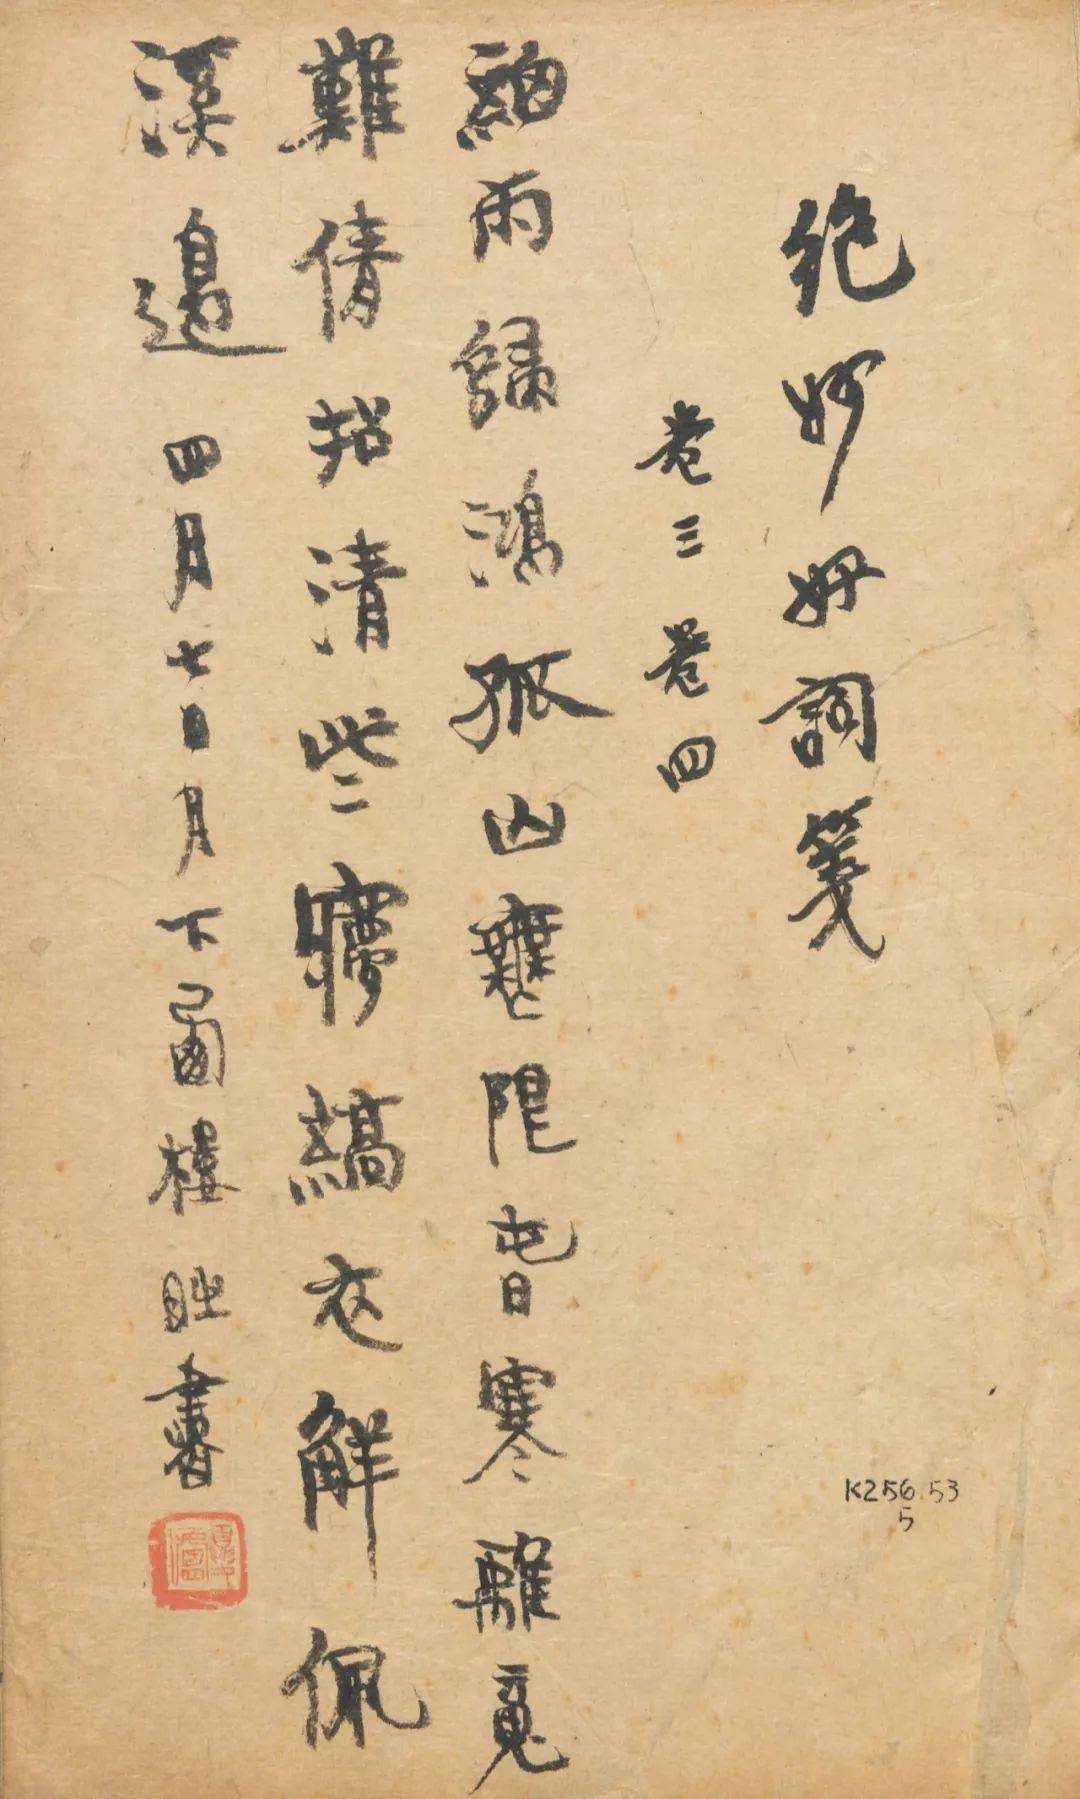 絶妙好詞箋
卷三 卷四
細雨歸鴻孤山無限春寒離魂
難倩招清些夢縞衣解佩
溪邊 四月七日月下 樓 書
K256.53
5